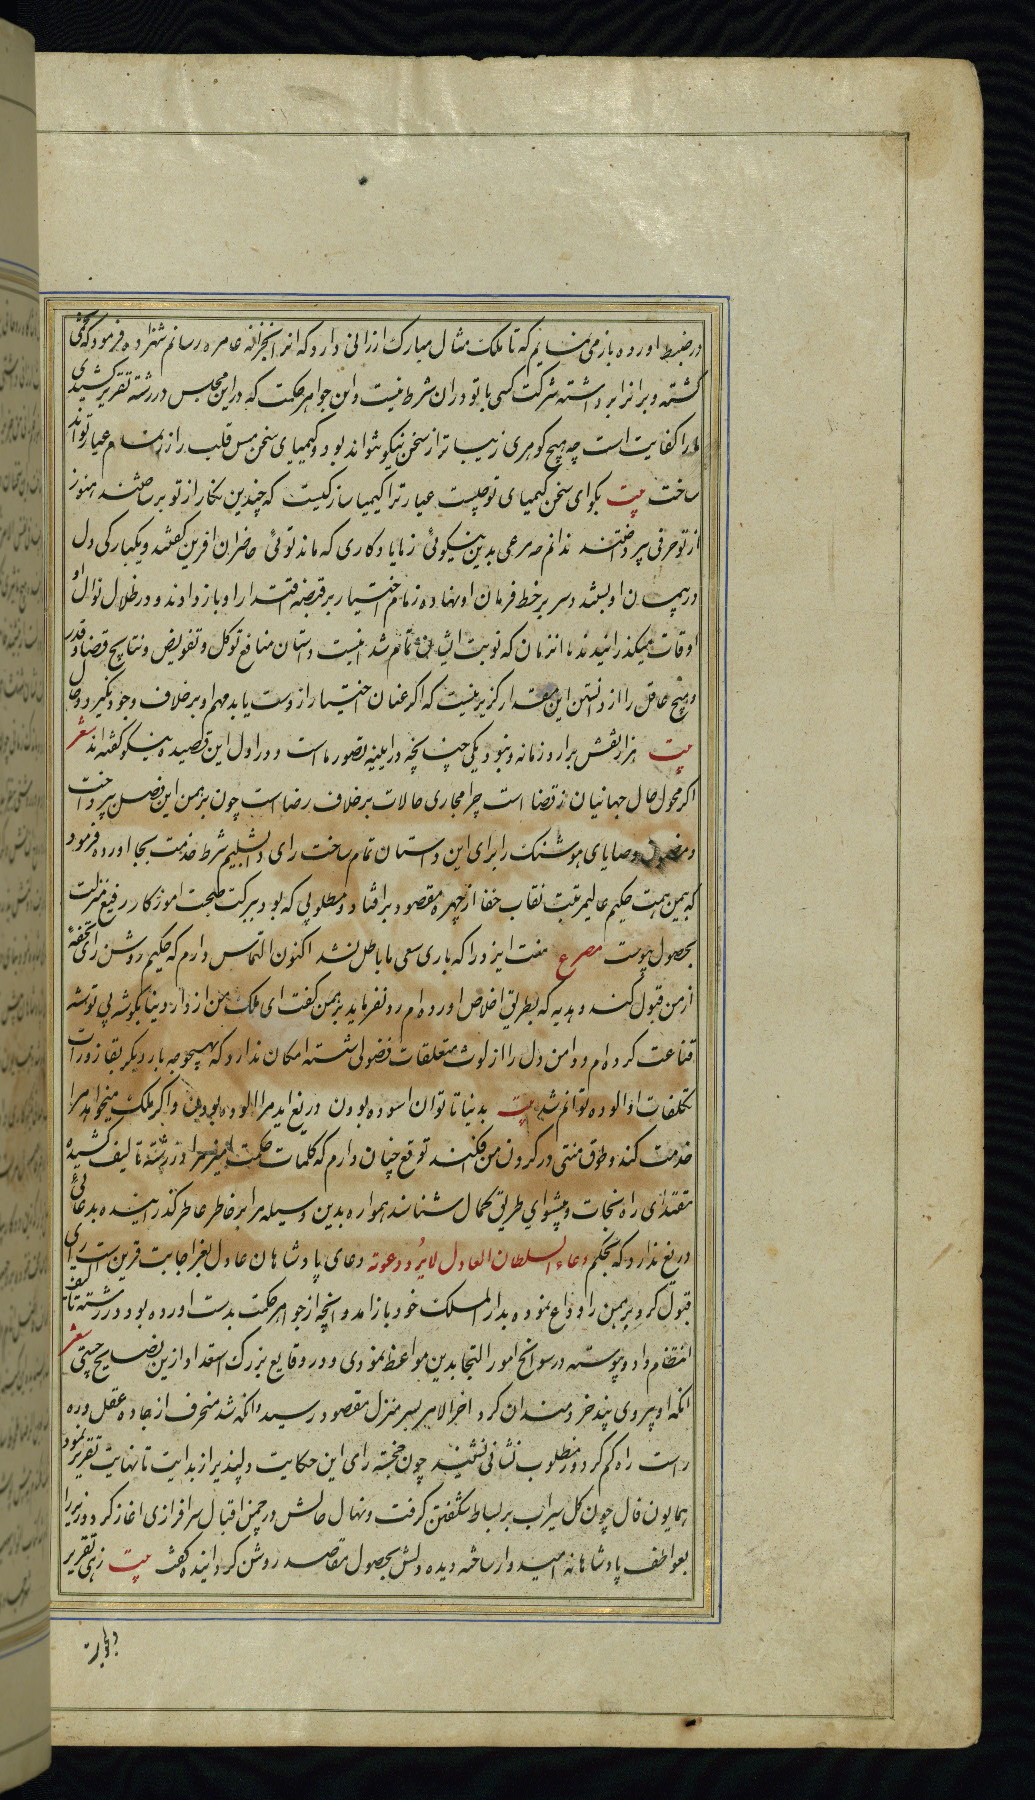 در ضبط اورده باز می نمایم که تا ملک مثال مبارک ارزانی دارد که انرا بخزانه عامره رسانم شهزاده فرمود که گنجی
کشته و برانرا برداشته شرکت کسی با تو دران شرط نیست و این جواهر حکمت که دراین مجلس در رشته تقریر کشیدی
ما را کفایت است چه هیچ کوهری زیبا تر از سخن نیکو نتواند بود و کیمیای سخن مس قلب را زر تمام عیار تواند
ساخت بیت بکو ای سخن کیمیای تو چیست عیار ترا کیمیا ساز کیست که چندین نکار از تو بر ساختند هنوز
از تو حرفی نپرداختند ندانم چه مرغی بدین نیکوئی زما یادکاری که ماند توئی حاضران افرین کفتند و یکبارکی دل
در پیمان او بستند و سر بر خط فرمان او نهاده زمام اختیار بر قبضه اقتدار او باز دادند و در ظلال نوال او
اوقات میکذرانیدند تا انزمان که نوبت ایشان تمام شد اینست داستان منافع توکل و تفویض و نتایج قضا و قدر
و هیچ عاقل را از دانستن این مقدار کزیر نیست که اکر عنان اختیار از دست یابد مهم او بر خلاف وجود نکیرد و حال
بیت هزار نقش برارد زمانه و نبود یکی چنانچه در ایینه تصور ماست و در اول این قصیده نیکو کفته اند شعر
اکر محول حال جهانیان نه قضا است چرا مجاری حالات بر خلاف رضا است چون برهمن این فصل بپرداخت
و مضمون وصایای هوشنک را برای این داستان تمام ساخت رای دابشلیم شرط خدمت بجا اورده فرمود
که بیمن همت حکیم عالیمرتبت نقاب خفا از چهره مقصود برافتاد و مطلوبی که بود ببرکت صحبت اموزکار رفیع منزلت
بحصول پیوست مصرع منت ایزد را که باری سعی ما باطل نشد اکنون التماس دارم که حکیم روشن رای تحفه
از من قبول کند و هدیه که بطریق اخلاص اورده ام رد نفرماید برهمن کفت ای ملک من از دار دنیا بکوشه بی توشه
قناعت کرده ام و دامن دل را از لوث متعلقات فضولی شسته امکان ندارد که بهیچوجه بار دیکر بقاذورات
تکلفات او الوده توانم شد بیت بدنیا تا توان اسوده بودن دریغ اید مرا الوده بودن و اکر ملک میخواهد مرا
خدمت کند و طوق منتی در کردن من فکند توقع چنان دارم که کلمات حکمت امیز مرا در رشته تالیف کشیده
مقتدای راه نجات و پیشوای طریق کمال شناسند همواره بدین وسیله مرا بر خاطر عاطر کذرانیده بدعائی
دریغ ندارد که بحکم دعاء السلطان العادل لا یرد دعوته دعای پادشاهان عادل بغز اجابت قرین ست رای
قبول کرد برهمن را وداع نموده بدار الملک خود باز امد و انچه از جواهر حکمت بدست اورده بود در رشته تالیف
انتظام داد و پیوسته در سوانح امور التجا بدین مواعظ نمودی و در وقایع بزرک استمداد ازین نصایح جستی شعر
انکه او پیروی پند خردمندان کرد اخر الامر بسر منزل مقصود رسید وانکه شد منحرف از جاده عقل و ره
راست راه کم کرد و ز مطلوب نشانی نشنید چون خجسته رای این حکایت دلپذیر از بدایت تا نهایت تقریر نمود
همایون فال چون کل سیراب بر بساط شکفتن کرفت و نهال حالش در چمن اقبال سرافرازی اغاز کرد وزیر را
بعواطف پادشاهانه امیدوار ساخته دیده دلش بحصول مقاصد روشن کردانیده کفت بیت زهی تقریر